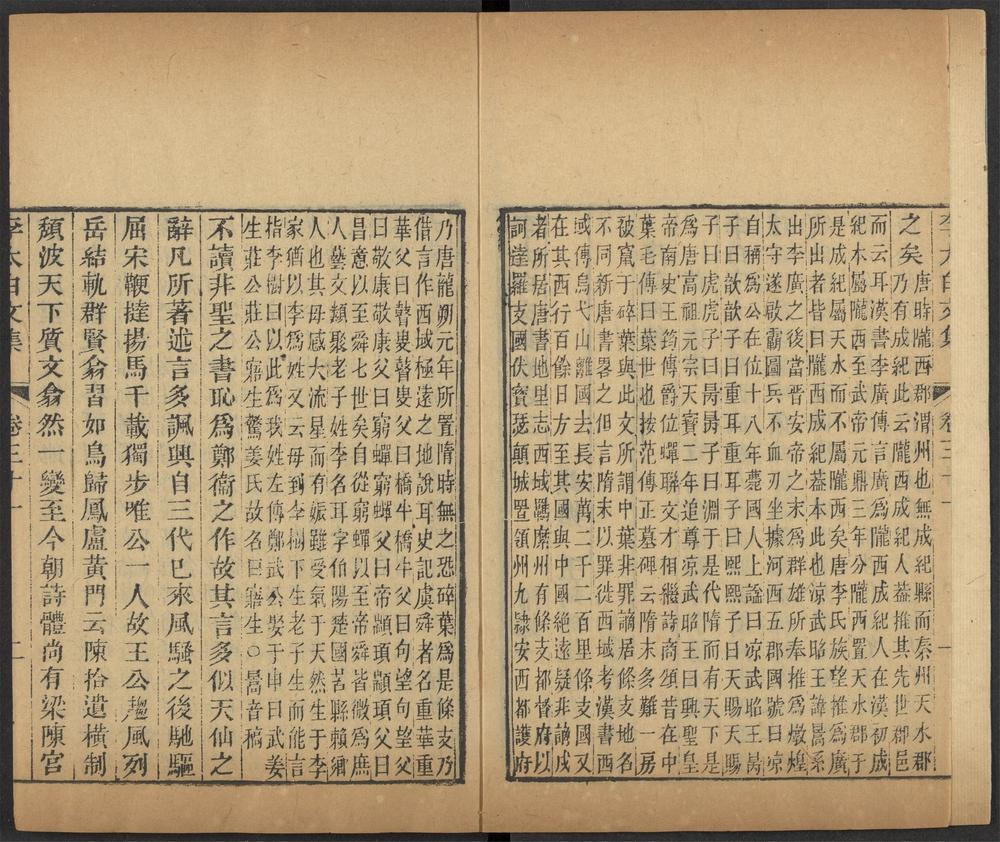 李太白文集 卷三十一 一
之矣 唐時隴西郡渭州也無成紀縣而秦州天水郡
乃有成紀此云隴西成紀人蓋推其先世郡邑
而云耳漢書李廣傳言廣爲隴西成紀人在漢初成
紀本屬隴西至武帝元鼎三年分隴西置天水郡于
是成紀屬天水而不屬隴西矣唐李氏族望推爲廣
所出者皆曰隴西成紀蓋本此也涼武昭王諱暠系
出李廣之後當晋安帝之末爲群雄所奉推爲燉煌
太守遂啟霸圖兵不血刃坐據河西五郡國號曰凉
自稱爲公在位十八年薨國人上謚曰凉武昭王暠
子曰歆歆子曰重耳重耳子曰熙熙子曰天賜天賜
子曰虎虎子曰昺昺子曰淵于是代隋而有天下是
爲唐高祖元宗天寶二年追尊凉武昭王曰興聖皇
帝南史王筠傳爵位蟬聯文才相繼詩商頌昔在中
葉毛傳曰葉世也按范傳正墓碑云隋末多難一房
被竄于碎葉與此文所謂中葉非罪謫居條支地名
不同新唐書畧之但言隋末以罪徙西域考漢書西
域傳烏弋山離國去長安萬二千二百里條支國又
在其西行百餘日方至其國與中國絶遠疑非謫戍
者所居唐書地里志西域羈縻州有條支都督府以
訶達羅支國伏寶瑟顛城置領州九隸安西都護府
乃唐龍朔元年所置隋時無之恐碎葉爲是條支乃
借言作西域極遠之地說耳史記虞舜者名重華重
華父曰瞽叟瞽叟父曰橋牛橋牛父曰句望句望父
曰敬康敬康父曰窮蟬窮蟬父曰帝顓頊顓頊父曰
昌意以至舜七世矣自從窮蟬以至帝舜皆微爲庶
人藝文類聚老子姓李名耳字伯陽楚國苦縣賴鄉
人也其母感大流星而有娠雖受氣于天然生于李
家猶以李爲姓又云母到李樹下生老子生而能言
指李樹曰以此爲我姓左傳鄭武公娶于申曰武姜
生莊公莊公寤生驚姜氏故名曰寤生○暠音稿
不讀非聖之書恥爲鄭衞之作故其言多似天仙之
辭凡所著述言多諷興自三代已來風騷之後馳驅
屈宋鞭撻揚馬千載獨步唯公一人故王公趨風列
岳結軌群賢翕習如鳥歸鳳盧黃門云陳拾遺橫制
頹波天下質文翕然一變至今朝詩體尚有梁陳宮
李太白文集 卷三十一 二